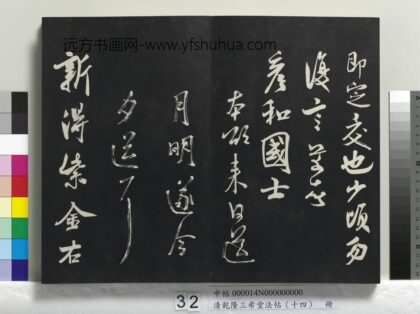 远方书画网-www.yfshuhua.com
即定交也少頃勿
復言芾頓首
彦和國士
本欲来日送
月明遂今
夕送耳
新得紫金右
32
中帖 000014N000000000
清乾隆三希堂法帖（十四） 冊